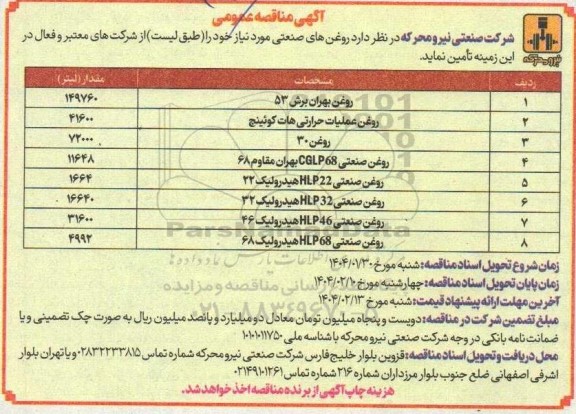 آگهی مناقصه عمومی
شرکت صنعتی نیرو محرکه در نظر دارد روغن های صنعتی مورد نیاز خود را (طبق لیست) از شرکت های معتبر و فعال در
این زمینه تأمین نماید.
نیرو محرکه
ردیف مشخصات مقدار (لیتر)
۱ روغن بهران برش ۵۳ ۱۴۹۷۶۰
۲ روغن عملیات حرارتی هات کوئینچ ۴۱۶۰۰
۳ روغن ۳۰ ۷۲۰۰۰
۴ روغن صنعتی CGLP68 بهران مقاوم ۶۸ ۱۱۶۴۸
۵ روغن صنعتی HLP22 هیدرولیک ۲۲ ۱۶۶۴
۶ روغن صنعتی HLP32 هیدرولیک ۳۲ ۱۶۶۴۰
۷ روغن صنعتی HLP46 هیدرولیک ۴۶ ۳۱۶۰۰
۸ روغن صنعتی HLP68 هیدرولیک ۶۸ ۴۹۹۲
زمان شروع تحویل اسناد مناقصه: شنبه مورخ ۱۴۰۴/۰۱/۳۰
زمان پایان تحویل اسناد مناقصه: چهارشنبه مورخ ۱۴۰۴/۰۲/۱۰
آخرین مهلت ارائه پیشنهاد قیمت: شنبه مورخ ۱۴۰۴/۰۲/۱۳
مبلغ تضمین شرکت در مناقصه: دویست و پنجاه میلیون تومان معادل دو میلیارد و پانصد میلیون ریال به صورت چک تضمینی و یا
ضمانت نامه بانکی در وجه شرکت صنعتی نیرو محرکه با شناسه ملی ۱۰۱۰۱۰۱۱۷۵۰
محل دریافت و تحویل اسناد مناقصه: قزوین بلوار خلیج فارس شرکت صنعتی نیرو محرکه شماره تماس ۰۲۸۳۲۲۳۳۸۱۵ و یا تهران بلوار
اشرفی اصفهانی ضلع جنوب بلوار مرزداران شماره ۲۱۶ شماره تماس ۰۲۱۴۹۱۰۱۲۶۱
هزینه چاپ آگهی از برنده مناقصه اخذ خواهد شد.
ParsNamadData